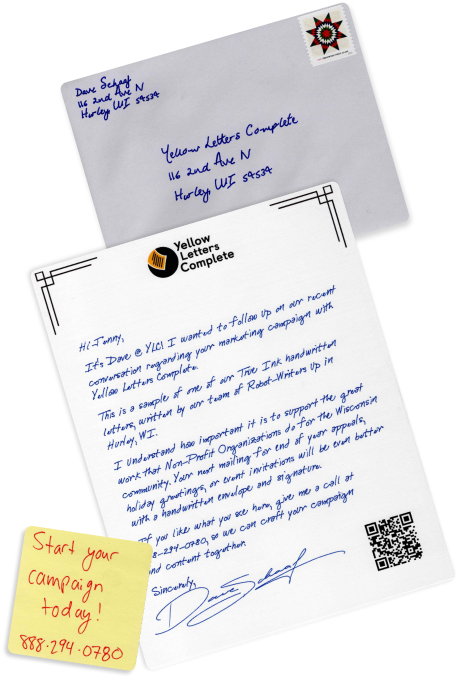 Dave Schaaf
116 2nd Ave N
Hurley, WI 54534
Yellow Letters Complete
116 2nd Ave N
Hurley, WI 54534
Yellow
Letters
Complete
Hi Jenny,
It's Dave @ YLC! I wanted to follow up on our recent
conversation regarding your marketing campaign with
Yellow Letters Complete.
This is a sample of one of our True Ink handwritten
letters, written by our team of Robot-Writers up in
Hurley, WI.
I understand how important it is to support the great
work that Non-Profit Organizations do for the Wisconsin
community. Your next mailing for end of year appeals,
holiday greetings, or event invitations will be even better
with a handwritten envelope and signature.
If you like what you see here, give me a call at
8-294-0780, so we can craft your campaign
and content together.
Sincerely,
Dave Schaaf
Start your
campaign
today!
888.294.0780